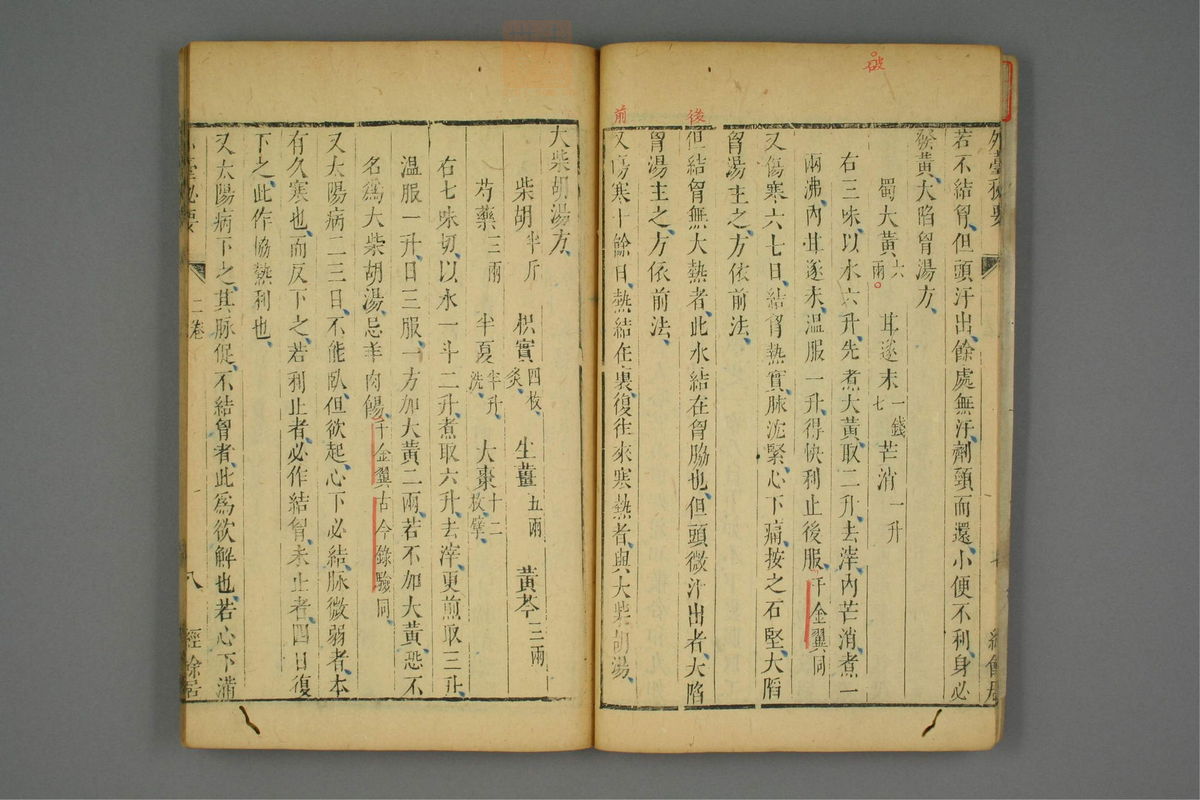 破
後
前
外臺秘要
若不結胷但頭汗出餘處無汗劑頸而還小便不利身必
發黃大陷胷湯方
蜀大黃六兩 甘遂末一錢七 芒消一升
右三味以水六升先煮大黃取二升去滓內芒消煮一
兩沸內甘遂末溫服一升得快利止後服千金翼同
又傷寒六七日結胷熱實脉沈緊心下痛按之石堅大陷
胷湯主之方依前法
但結胷無大熱者此水結在胷脇也但頭微汗出者大陷
胷湯主之方依前法
又傷寒十餘日熱結在裏復徃來寒熱者與大柴胡湯
大柴胡湯方
柴胡半斤 枳實四枚炙 生薑五兩 黃芩三兩
芍藥三兩 半夏半升洗 大棗十二枚擘
右七味切以水一斗二升煮取六升去滓更煎取三升
溫服一升日三服一方加大黃二兩若不加大黃恐不
名爲大柴胡湯忌羊肉餳千金翼古今錄驗同
又太陽病二三日不能臥但欲起心下必結脉微弱者本
有久寒也而反下之若利止者必作結胷未止者四日復
下之此作恊熱利也
又太陽病下之其脉促不結胷者此爲欲解也若心下滿
二卷
八
經餘居